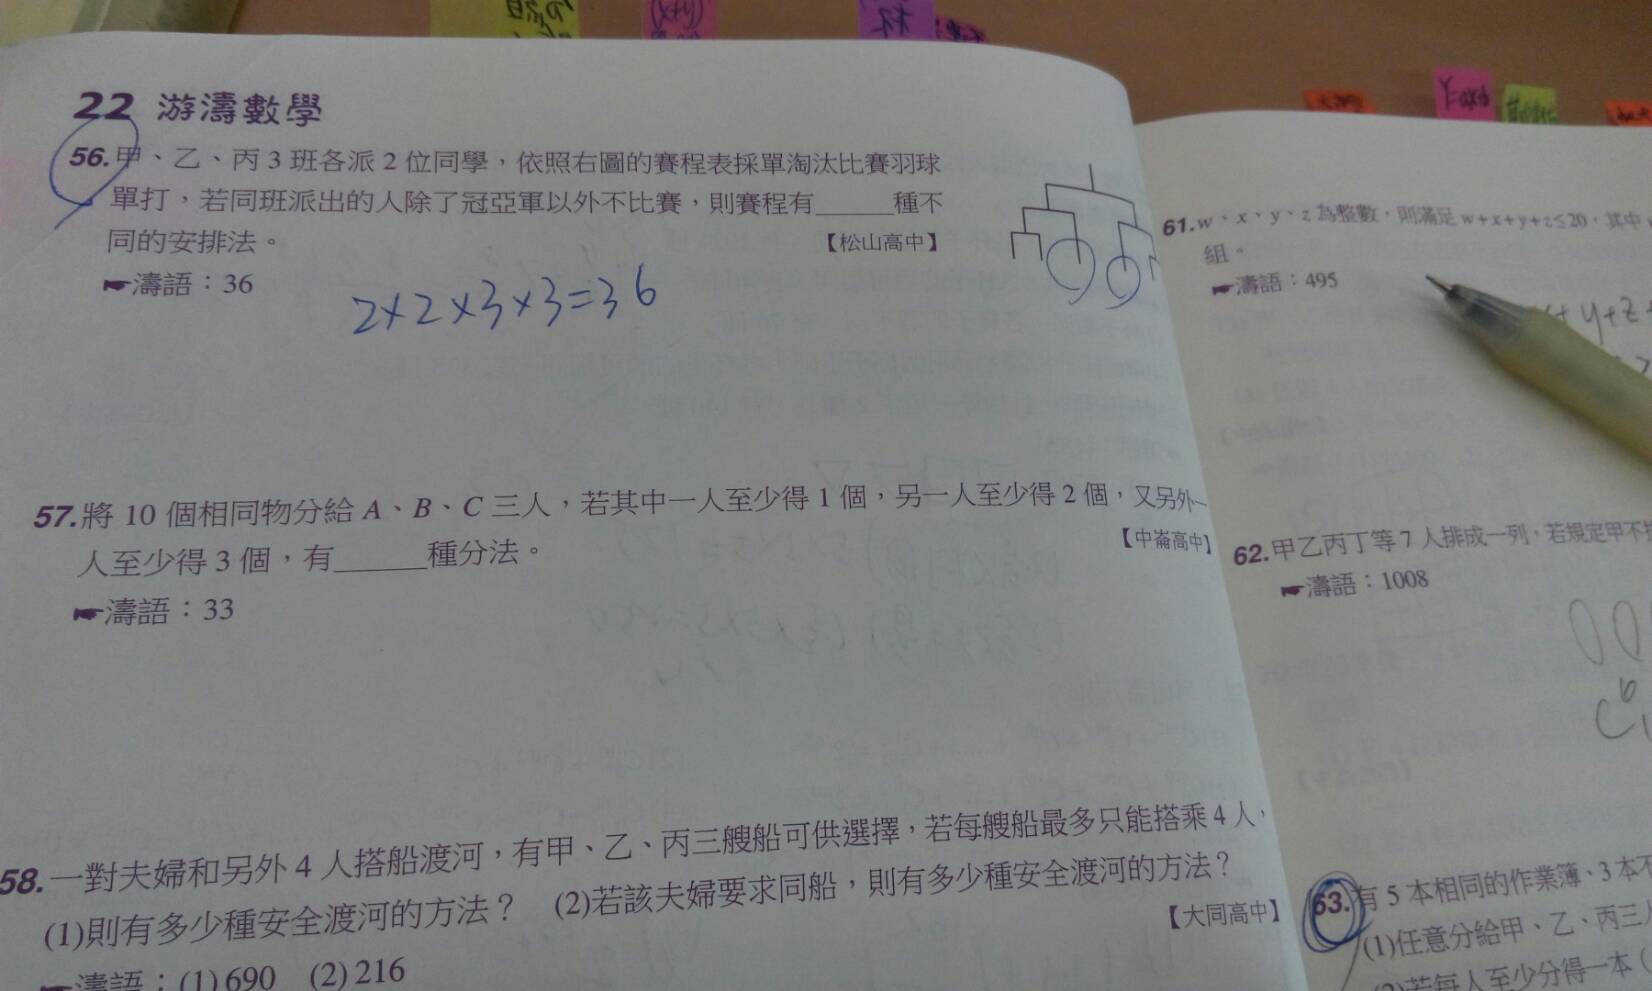 22 游濤數學
56.甲、乙、丙3班各派2位同學，依照右圖的賽程表採單淘汰比賽羽球
單打，若同班派出的人除了冠亞軍以外不比賽，則賽程有______種不
同的安排法。 【松山高中】
☛濤語：36
2×2×3×3=36
57.將 10 個相同物分給 A、B、C 三人，若其中一人至少得 1 個，另一人至少得 2 個，又另外一
人至少得 3 個，有______種分法。 【中崙高中】
☛濤語：33
58.一對夫婦和另外 4 人搭船渡河，有甲、乙、丙三艘船可供選擇，若每艘船最多只能搭乘 4 人，
(1)則有多少種安全渡河的方法？ (2)若該夫婦要求同船，則有多少種安全渡河的方法？
【大同高中】
☛濤語：(1) 690 (2) 216
61.w、x、y、z 為整數，則滿足 w+x+y+z≤20，其中
組。
☛濤語：495
y+z
62.甲乙丙丁等 7 人排成一列，若規定甲不
☛濤語：1008
63.有 5 本相同的作業簿、3 本不
(1)任意分給甲、乙、丙三
(2)若每人至少分得一本
Y=ax+b